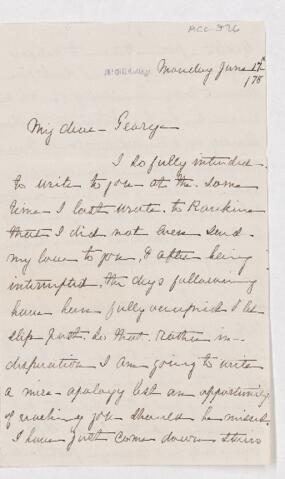 ACC 526
Monday June 17th
/78
My dear George
I so fully intended
to write to you at the same
time I last wrote to Rankine
that I did not even send
my love to you, & after being
interrupted, the days following
have been fully occupied I let
slip past. So that rather in
desperation I am going to write
a mere apology lest an opportunity
of reaching you should be missed.
I have just come down stairs